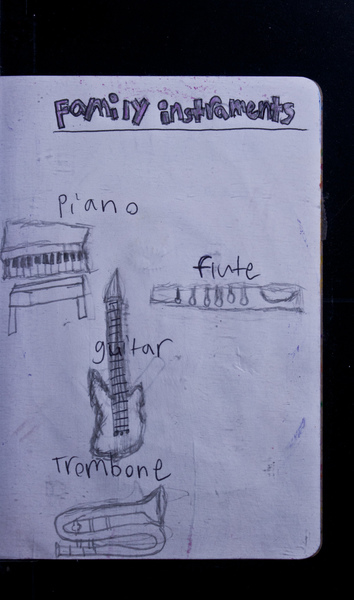 Family instraments
Piano
flute
guitar
Trombone